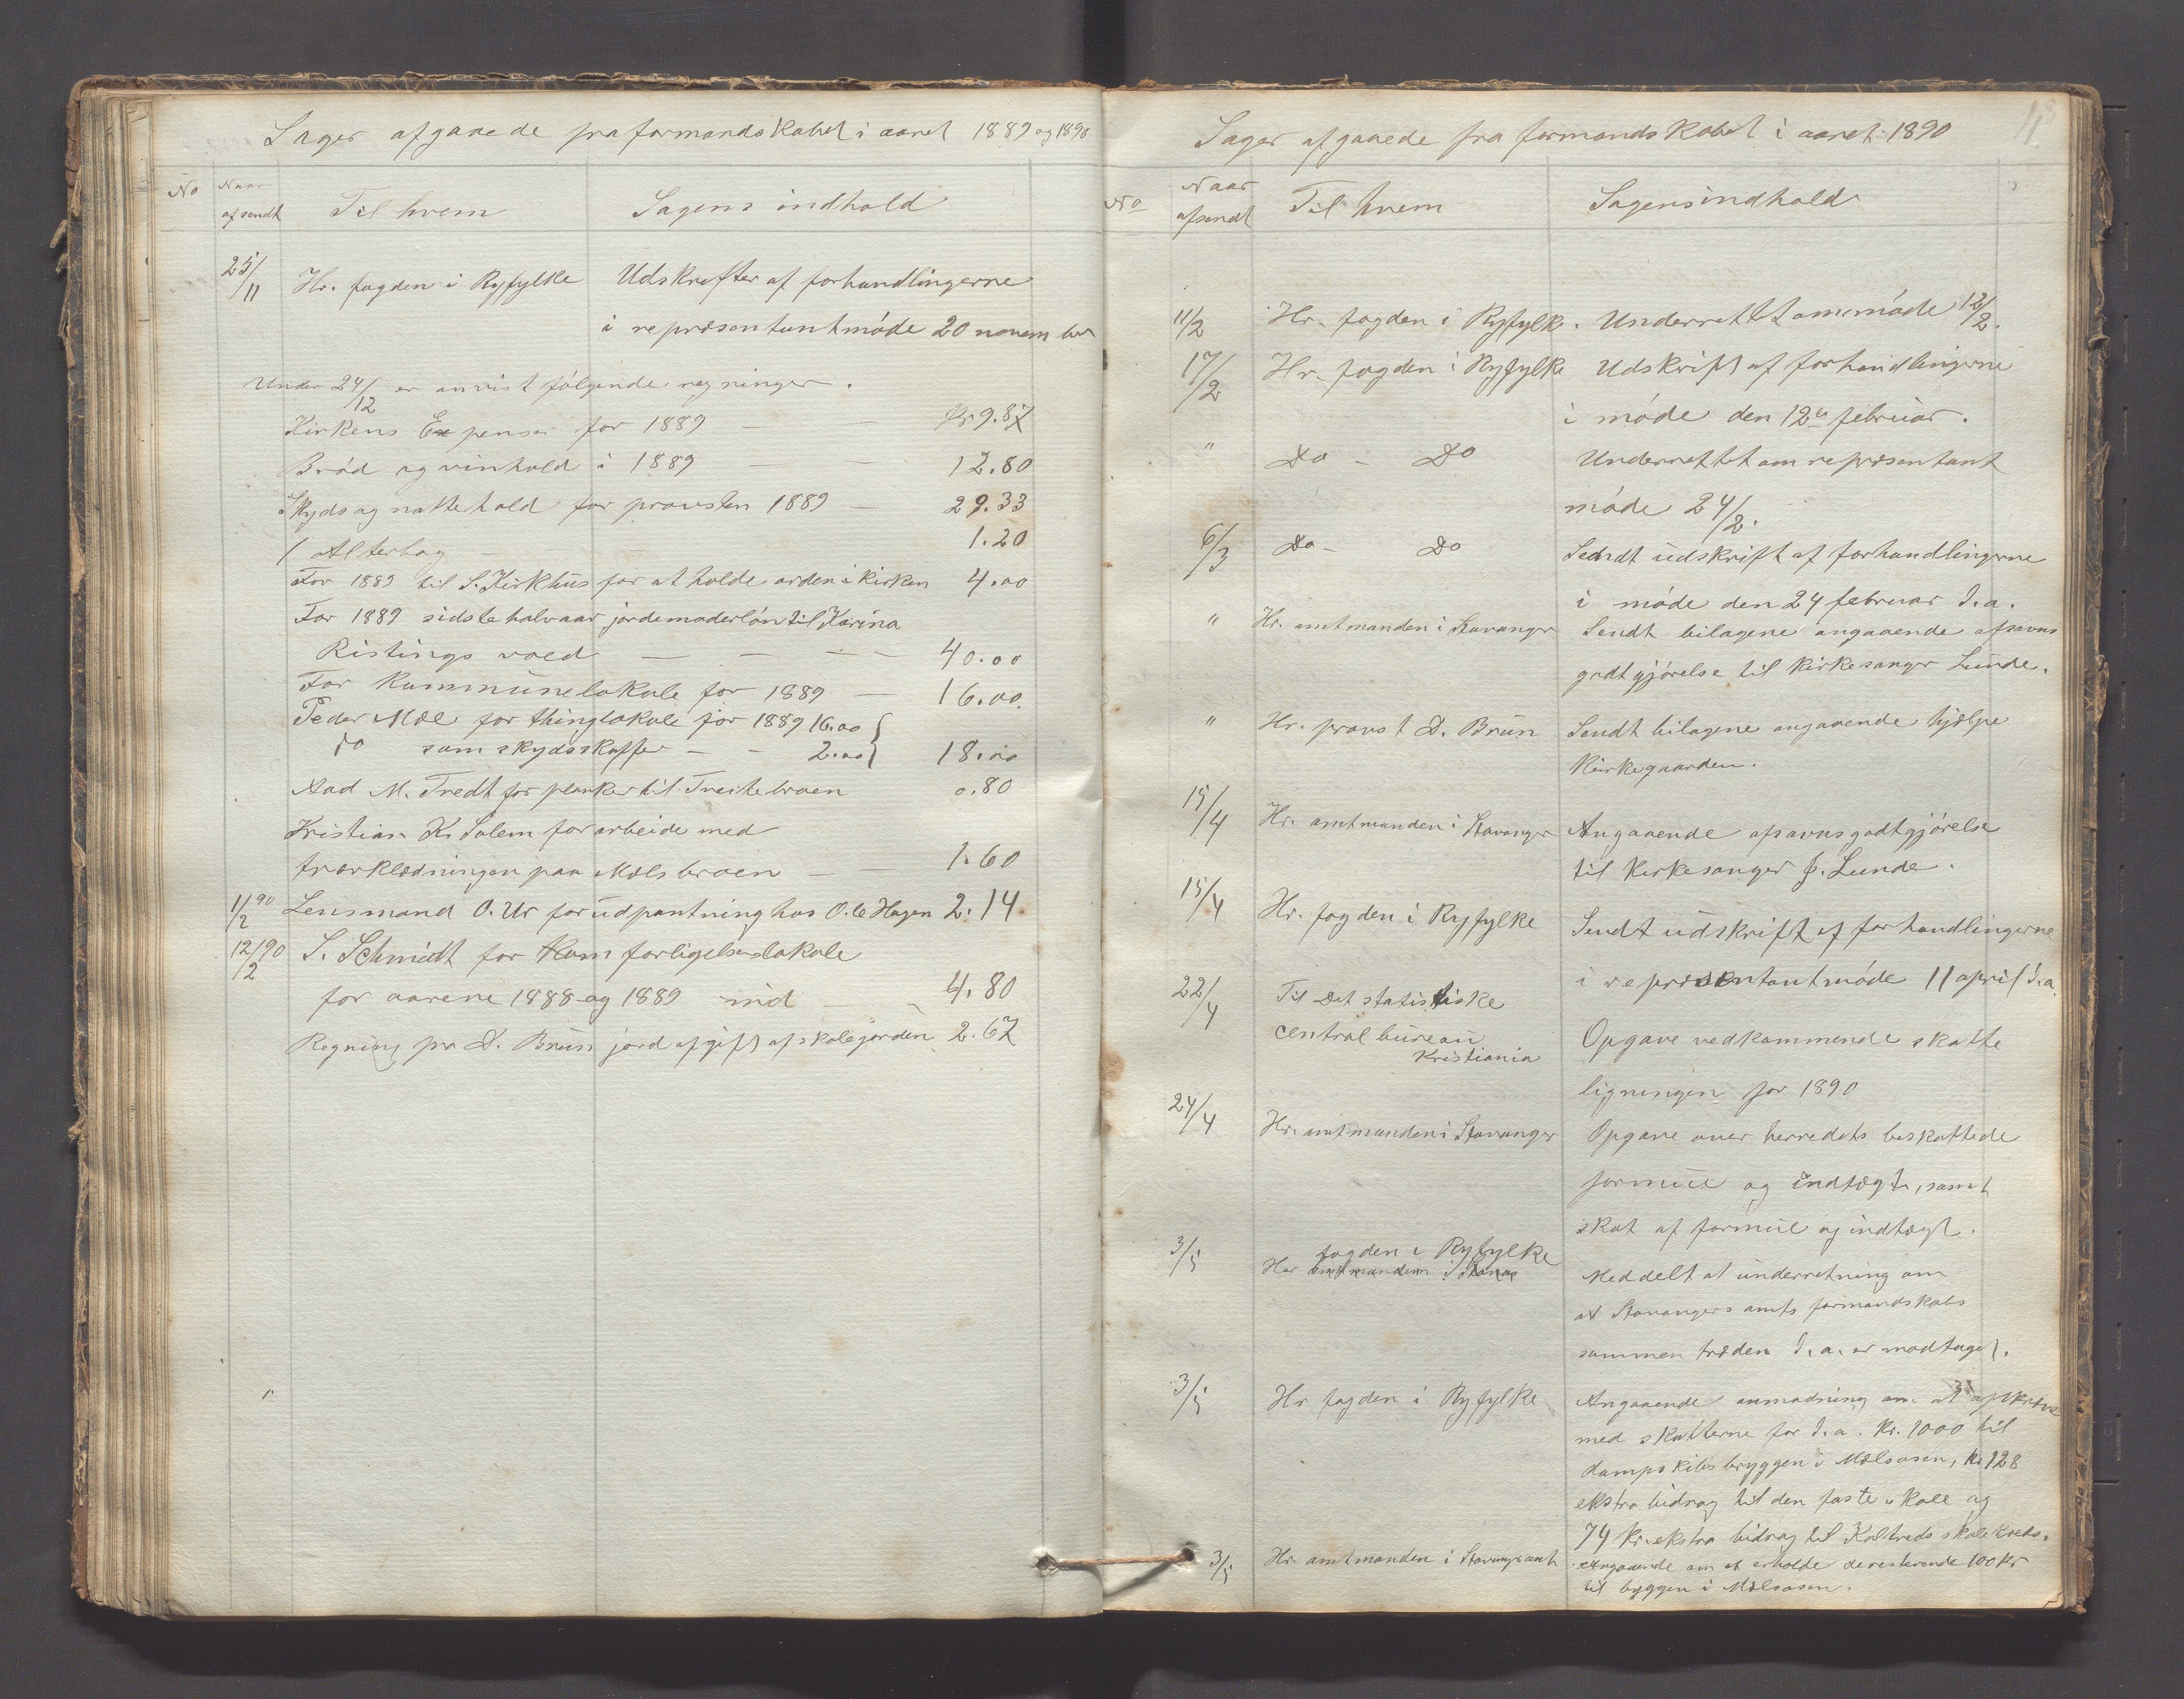 Sager afgaaede fra formandskabet i aaret 1889 og 1890
No Naar afsendt Til hvem Sagens indhold
25/11 Hr. fogden i Ryfylke Udskrifter af forhandlingerne
i repræsentantmöde 20 november
Under 24/12 er anvist fölgende regninger.
Kirkens Expenser for 1889 — Kr 9.87
Bröd og vinhold i 1889 — — 12.80
Skyds og nattehold for provsten 1889 — 29.33
1 Alterbog — 1.20
For 1889 til S. Kirkhus for at holde orden i kirken 4.00
For 1889 sidste halvaar jordemoderlön til Karina
Ristings vold — — — — 40.00
For Kommunelokale for 1889 — 16.00
Peder Mæl for thinglokale for 1889 16.00
do som skydsskaffer — — 2.00 18.00
Aad M. Tredt for planker til Treitebroen 0.80
Kristian K. Solem for arbeide med
trærklædningen paa Mælsbroen — — 1.60
1/2 90 Lensmand O. Ur for udpantning hos Ole Hagen 2.14
12/2 90 S. Schmidt for Kom forligelseslokale
for aarene 1888 og 1889 ind — 4.80
Regning fra D. Brun jord afgift af skolejorden 2.67
18
Sager afgaaede fra formandskabet i aaret 1890
No Naar afsendt Til hvem Sagens indhold
11/2 Hr. fogden i Ryfylke. Underrettet om möde 12/2.
17/2 Hr. fogden i Ryfylke Udskrift af forhandlingerne
i möde den 12te februar.
" Do — Do Underrettet om repræsentant
möde 24/2.
6/3 Do — Do Sendt udskrift af forhandlingerne
i möde den 24 februar d.a.
" Hr. amtmanden i Stavanger Sendt bilagene angaaende afsavns
godtgjörelse til kirkesanger Lunde.
" Hr. provst D. Brun Sendt bilagene angaaende hjælpe
Kirkegaarden.
15/4 Hr. amtmanden i Stavanger Angaaende afsavnsgodtgjörelse
til Kirkesanger J. Lunde.
15/4 Hr. fogden i Ryfylke Sendt udskrift af forhandlingerne
i repræsentantmöde 11 april d.a.
22/4 Til Det statistiske
central bureau
Kristiania Opgave vedkommende skatte
ligningen for 1890
24/4 Hr. amtmanden i Stavanger Opgave over herredets beskattede
formue og indtægt, samt
skat af formue og indtægt.
3/5 Her fogden i Ryfylke Meddelt at underretning om
at Stavangers amts formandskabs
sammen træden d.a. er modtaget.
3/5 Hr fogden i Ryfylke Angaaende anmodning om at opkræve
med skatterne for d.a. Kr. 1000 til
dampskibsbryggen i Mælsosen, Kr 128
ekstra bidrag til den faste skole og
74 Kr. ekstra bidrag til Kaltveds skolekreds.
3/5 Hr. amtmanden i Stavanger amt Angaaende om at erholde de resterende 100 Kr
til byggen i Mælsosen.